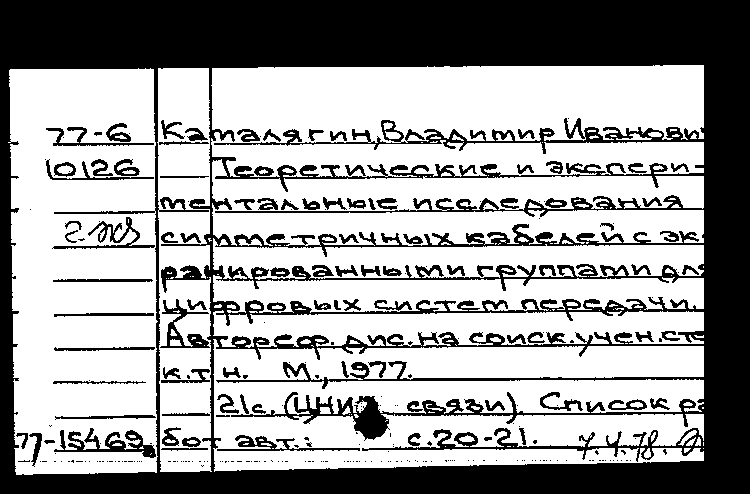 77-6 Каталягин, Владимир Иванови
10126 Теоретические и экспери-
ментальные исследования
симметричных кабелей с эк-
ранированными группами для
цифровых систем передачи.
Автореф. дис. на соиск. учен. сте
к.т.н. М., 1977.
21с. (ЦНИ связи). Список ра
77-15469 бот авт.: с.20-21. 7.4.78.